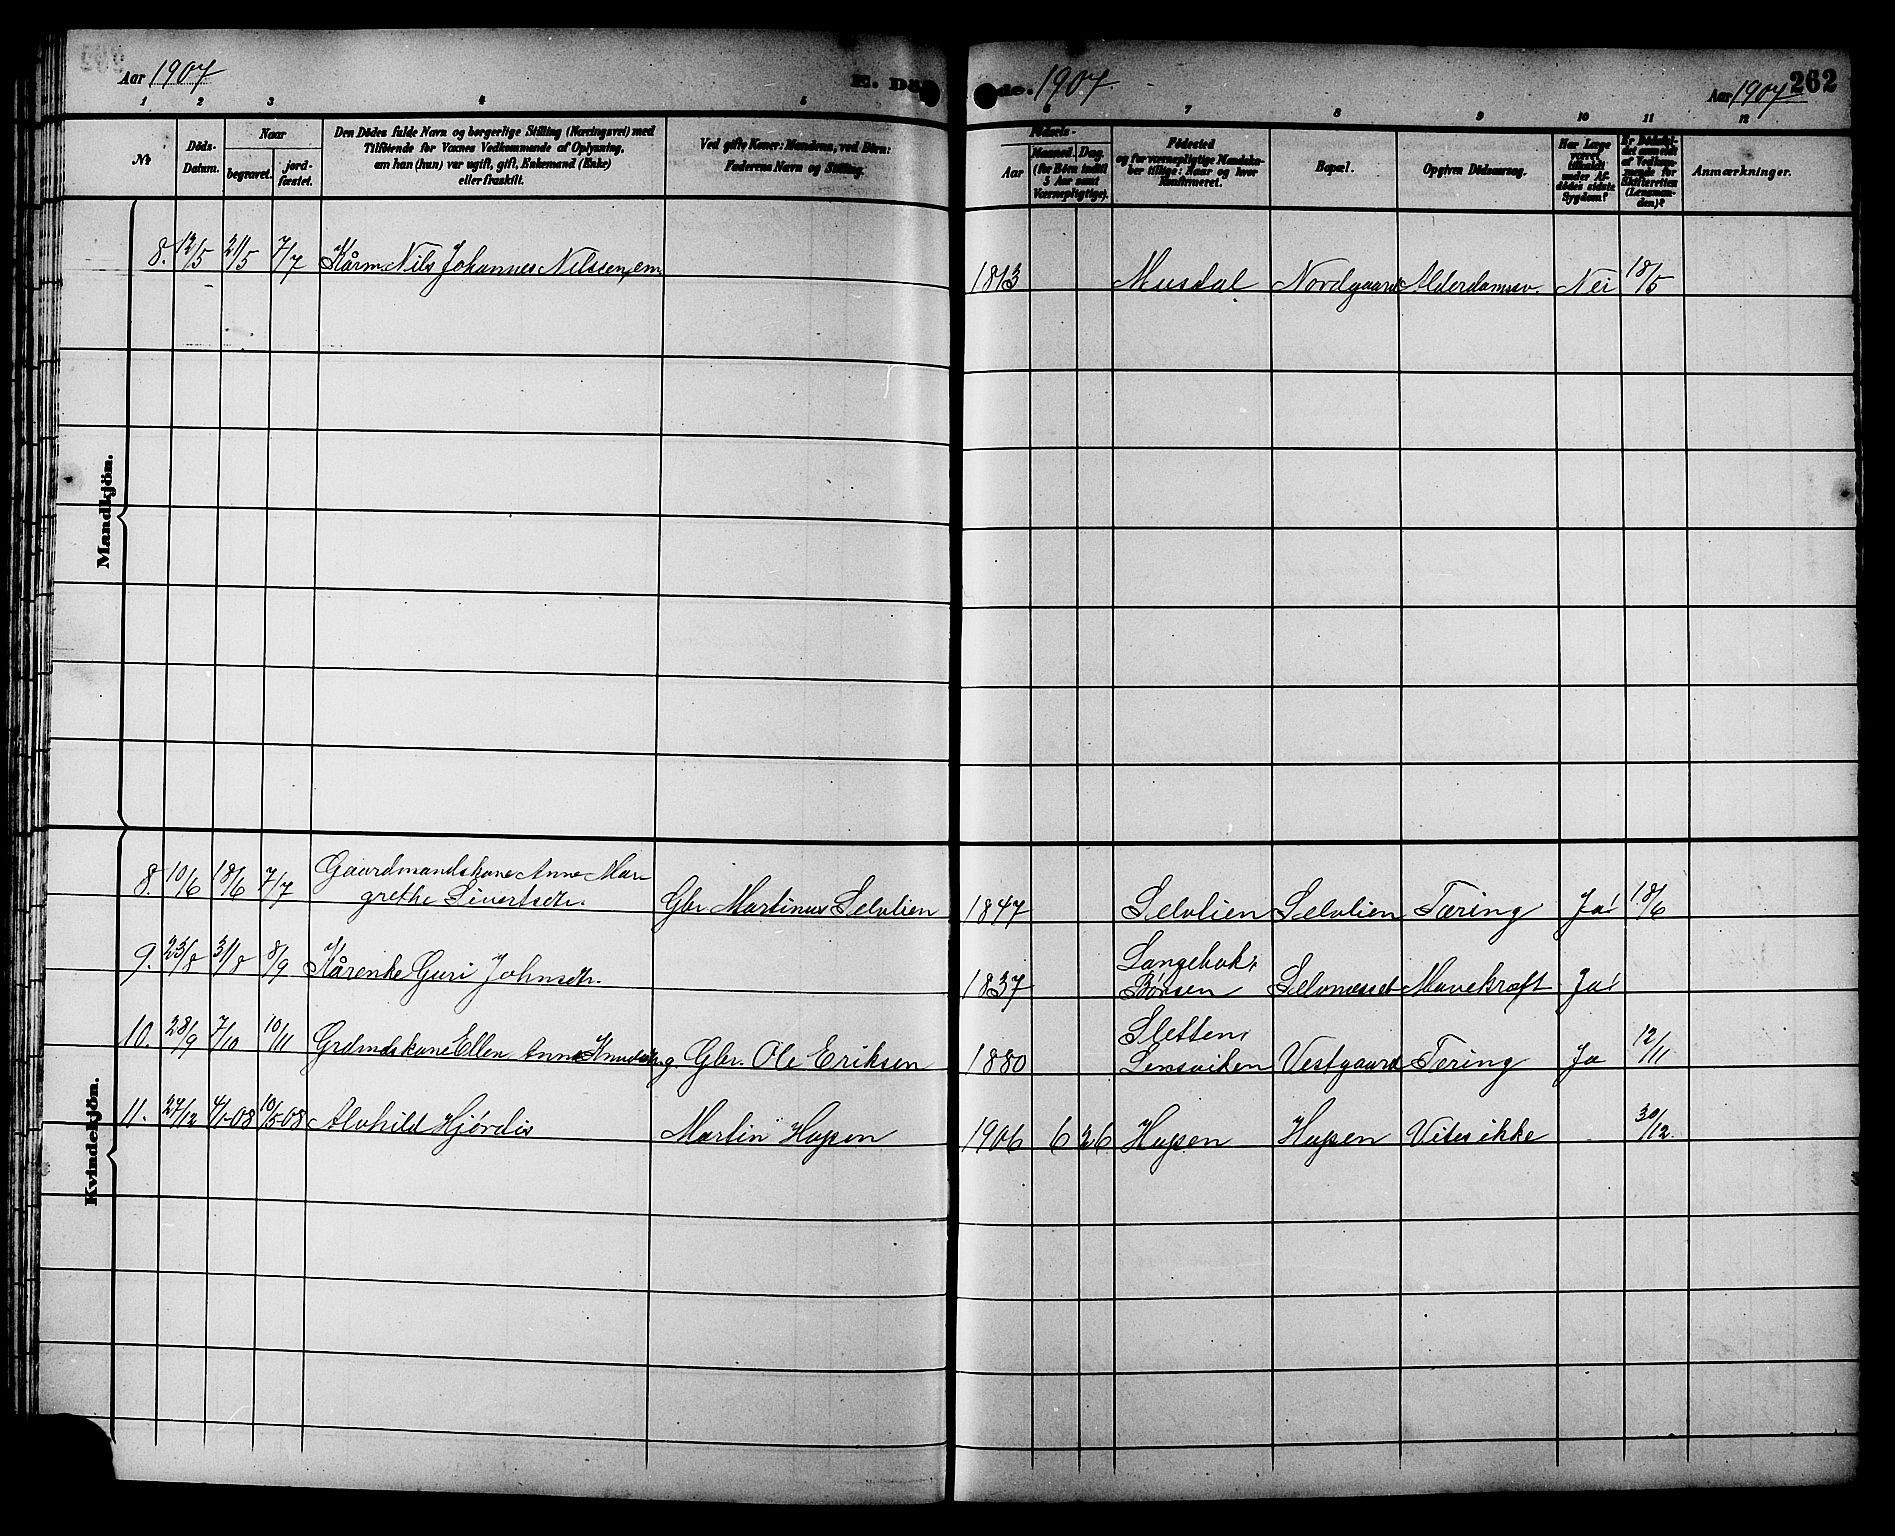 Aar 1907
E. Dö
de. 1907
Aar 1907
262
1 2 3 4 5 6 7 8 9 10 11 12
No
Döds-
Datum.
Naar
begravet.
jord-
fæstet.
Den Dödes fulde Navn og borgerlige Stilling (Næringsvei) med
Tilföiende for Voxnes Vedkommende af Oplysning,
om han (hun) var ugift, gift, Enkemand (Enke)
eller fraskilt.
Ved gifte Koner: Mandens, ved Börn:
Faderens Navn og Stilling.
Födsels-
Aar
Maaned. Dag.
(for Börn indtil
5 Aar samt
Værnepligtige).
Födested
og for værnepligtige Mandska-
ber tillige: Naar og hvor
Konfirmeret.
Bopæl.
Opgiven Dödsaarsag.
Har Læge
været
tilkaldt
under Af-
dödes sidste
Sygdom?
Er Dödsfal-
det anmeldt
af Vedkom-
mende for
Skifteretten
(Lensman-
den)?
Anmærkninger.
Mandkjön.
8. 12/5 21/5 7/7 Kårm. Nils Johannes Nilssen, em. 1813 Musdal Nordgaard Alderdomssv. Nei 18/5
Kvindekjön.
8. 10/6 18/6 7/7 Gaardmandskone Anne Mar
grethe Sivertsdtr. Gbr Martinus Selvlien 1847 Selvlien Selvlien Tæring Ja! 18/6
9. 23/8 31/8 8/9 Kårenke Guri Johnsdtr. 1837 Langebak,
Börsen Selvnesset Mavekræft Ja!
10. 28/9 7/10 10/11 Grdmdskone Ellen Anna Knudsdtr. Gbr. Ole Eriksen 1880 Sletten,
Lensviken Vestgaard Tæring Ja 12/11
11. 27/12 4/1-08 10/5-08 Alvhild Hjördis Martin Hopen 1906 6 26 Hopen Hopen Vites ikke 30/12.